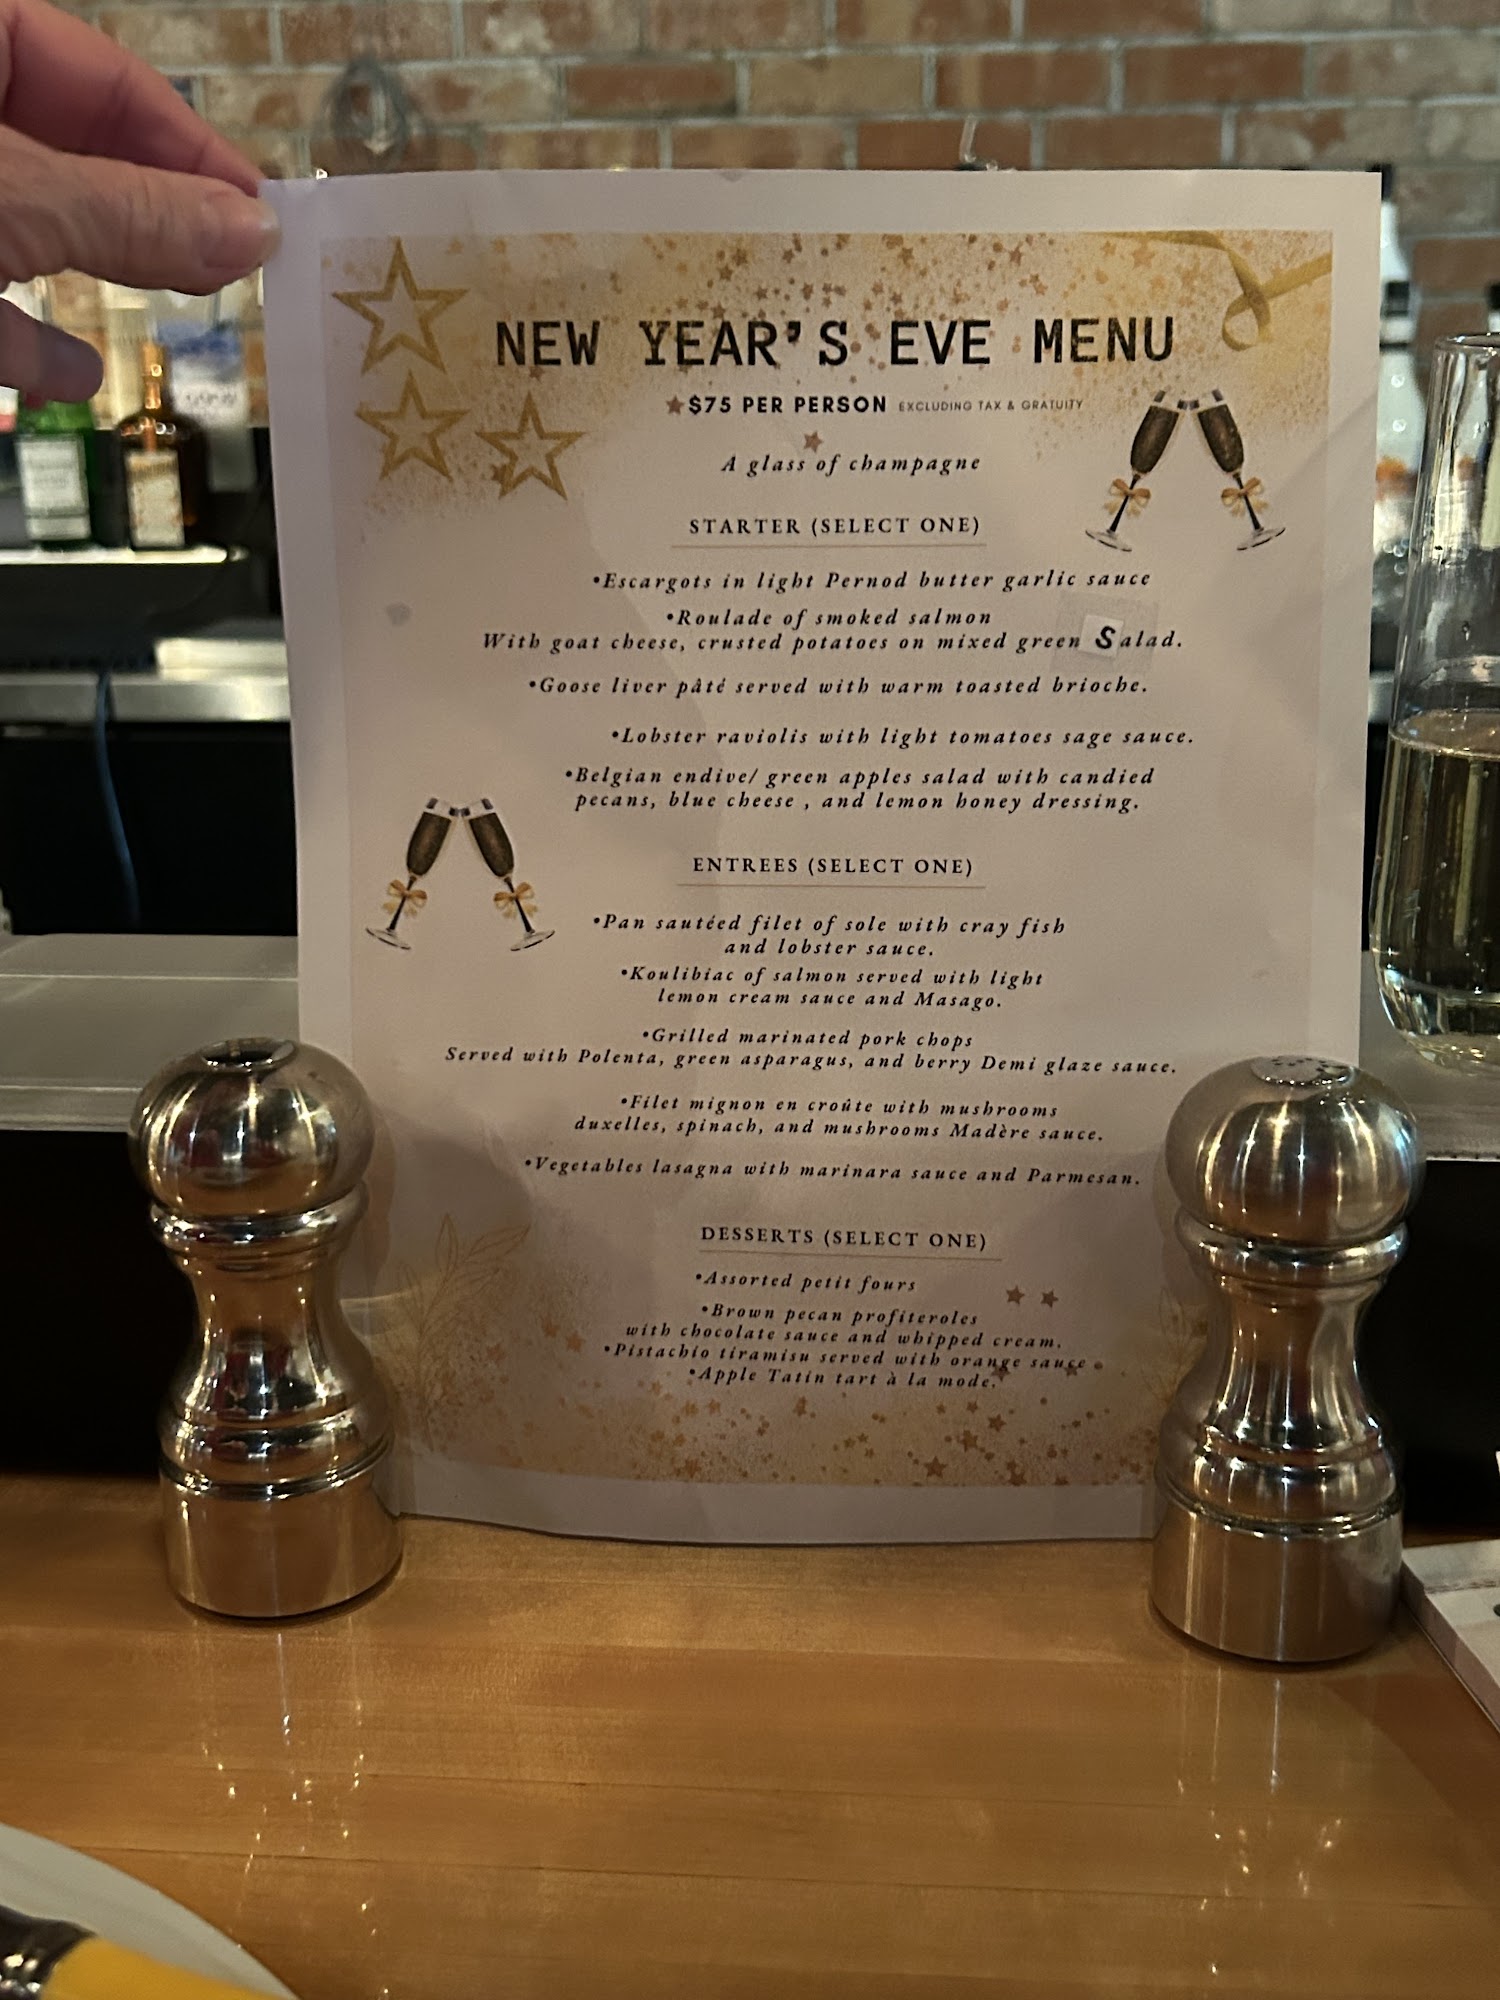 NEW YEAR'S EVE MENU
$75 PER PERSON EXCLUDING TAX & GRATUITY
A glass of champagne
STARTER (SELECT ONE)
•Escargots in light Pernod butter garlic sauce
•Roulade of smoked salmon
With goat cheese, crusted potatoes on mixed green Salad.
•Goose liver pâté served with warm toasted brioche.
•Lobster raviolis with light tomatoes sage sauce.
•Belgian endive/ green apples salad with candied
pecans, blue cheese , and lemon honey dressing.
ENTREES (SELECT ONE)
•Pan sautéed filet of sole with cray fish
and lobster sauce.
•Koulibiac of salmon served with light
lemon cream sauce and Masago.
•Grilled marinated pork chops
Served with Polenta, green asparagus, and berry Demi glaze sauce.
•Filet mignon en croûte with mushrooms
duxelles, spinach, and mushrooms Madère sauce.
•Vegetables lasagna with marinara sauce and Parmesan.
DESSERTS (SELECT ONE)
•Assorted petit fours
•Brown pecan profiteroles
with chocolate sauce and whipped cream.
•Pistachio tiramisu served with orange sauce
•Apple Tatin tart à la mode.